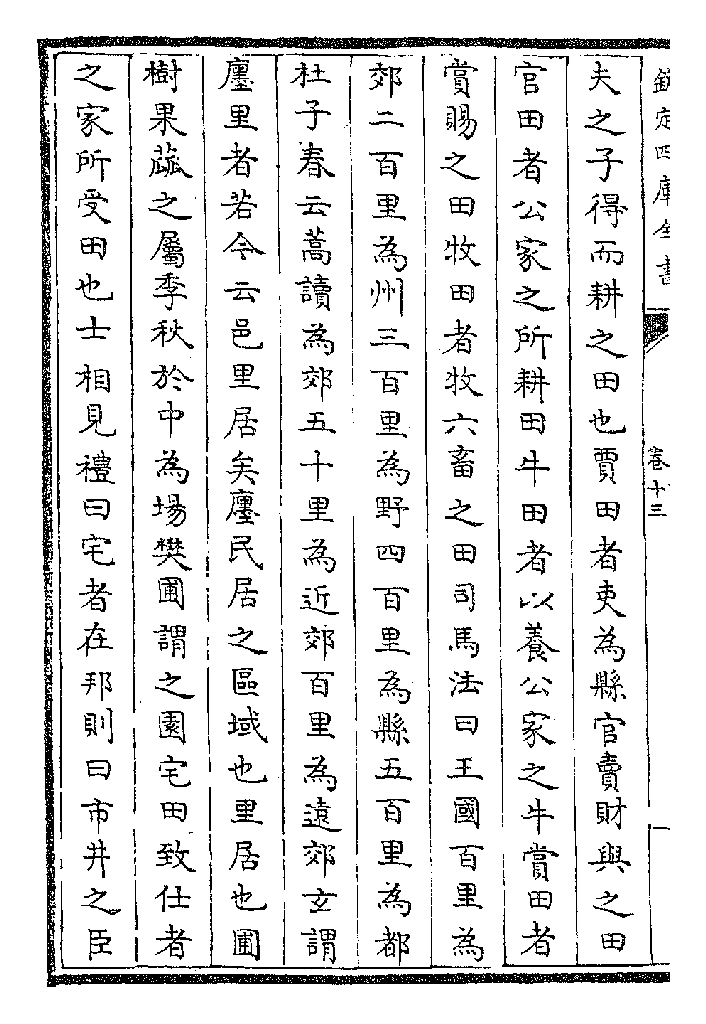 欽定四庫全書
卷十三
夫之子得而耕之田也賈田者吏為縣官賣財與之田
官田者公家之所耕田牛田者以養公家之牛賞田者
賞賜之田牧田者牧六畜之田司馬法曰王國百里為
郊二百里為州三百里為野四百里為縣五百里為都
杜子春云蒿讀為郊五十里為近郊百里為遠郊玄謂
廛里者若今云邑里居矣廛民居之區域也里居也圃
樹果蓏之屬季秋於中為場樊圃謂之園宅田致仕者
之家所受田也士相見禮曰宅者在邦則曰市井之臣